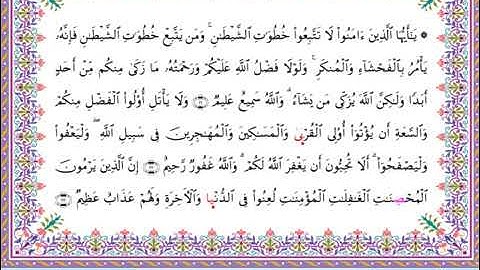 ۞ يَـٰٓأَيُّهَا ٱلَّذِينَ ءَامَنُوا۟ لَا تَتَّبِعُوا۟ خُطُوَٰتِ ٱلشَّيْطَـٰنِ ۚ وَمَن يَتَّبِعْ خُطُوَٰتِ ٱلشَّيْطَـٰنِ فَإِنَّهُۥ
يَأْمُرُ بِٱلْفَحْشَآءِ وَٱلْمُنكَرِ ۚ وَلَوْلَا فَضْلُ ٱللَّهِ عَلَيْكُمْ وَرَحْمَتُهُۥ مَا زَكَىٰ مِنكُم مِّنْ أَحَدٍ
أَبَدًا وَلَـٰكِنَّ ٱللَّهَ يُزَكِّى مَن يَشَآءُ ۗ وَٱللَّهُ سَمِيعٌ عَلِيمٌ ۝٢١ وَلَا يَأْتَلِ أُو۟لُوا۟ ٱلْفَضْلِ مِنكُمْ
وَٱلسَّعَةِ أَن يُؤْتُوٓا۟ أُو۟لِى ٱلْقُرْبَىٰ وَٱلْمَسَـٰكِينَ وَٱلْمُهَـٰجِرِينَ فِى سَبِيلِ ٱللَّهِ ۖ وَلْيَعْفُوا۟
وَلْيَصْفَحُوٓا۟ ۗ أَلَا تُحِبُّونَ أَن يَغْفِرَ ٱللَّهُ لَكُمْ ۗ وَٱللَّهُ غَفُورٌ رَّحِيمٌ ۝٢٢ إِنَّ ٱلَّذِينَ يَرْمُونَ
ٱلْمُحْصَنَـٰتِ ٱلْغَـٰفِلَـٰتِ ٱلْمُؤْمِنَـٰتِ لُعِنُوا۟ فِى ٱلدُّنْيَا وَٱلْـَٔاخِرَةِ وَلَهُمْ عَذَابٌ عَظِيمٌ ۝٢٣